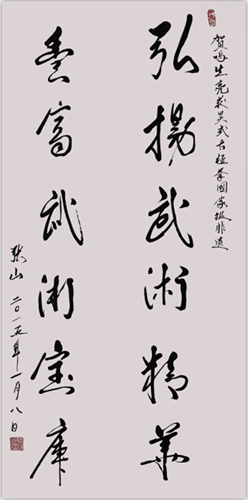 賀生亮吴式太極拳國家級非遺
弘揚武術精華
豐富武術寶庫
张山 二〇一五年一月八日